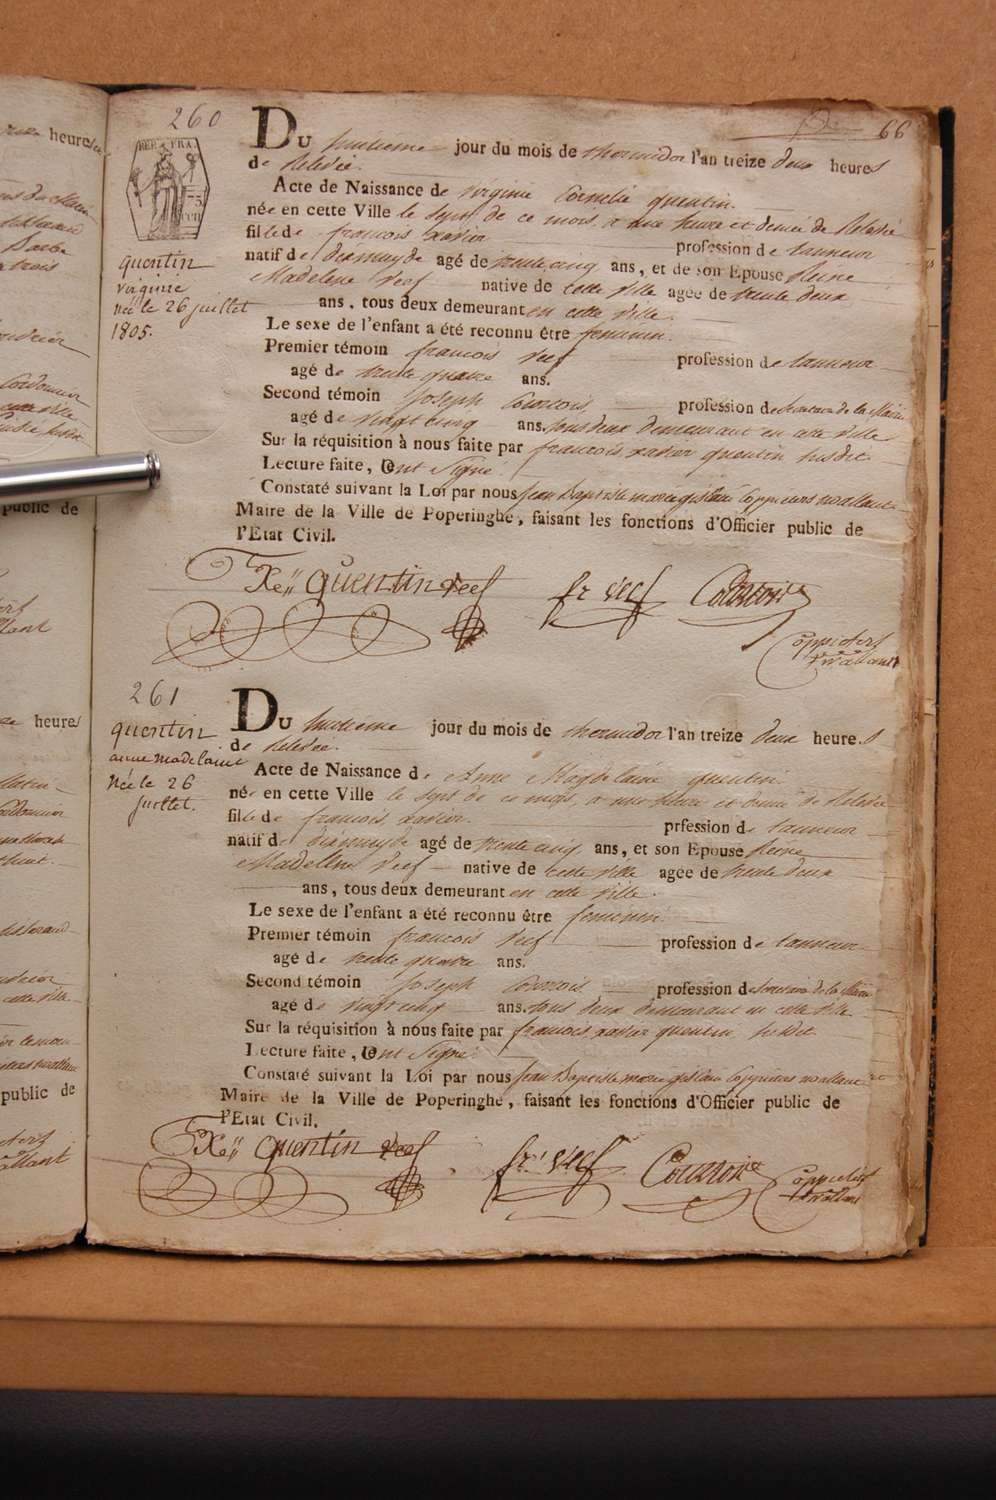 260
66
REP. FRA.
75
DU huitieme jour du mois de thermidor l'an treize deux heures
de Relevée.
Acte de Naissance de virginie Cornelie quentin.
née en cette Ville le sept de ce mois, a une heure et demie de Relevée
fille de françois xavier profession de tanneur
natif de dixmuyde agé de trente cinq ans, et de son Epouse Reine
Madelene Reef native de cette ville agée de trente deux
ans, tous deux demeurant en cette ville.
Le sexe de l'enfant a été reconnu être feminin.
Premier témoin françois Reef profession de tanneur
agé de trente quatre ans.
Second témoin Joseph Courtois, profession de Secretaire de la Mairie
agé de vingt cinq ans. tous deux demeurant en cette ville
Sur la réquisition à nous faite par françois xavier quentin susdit
Lecture faite, Ont Signé.
Constaté suivant la Loi par nous Jean Baptiste marie
Maire de la Ville de Poperinghe, faisant les fonctions d'Officier public de
l'Etat Civil.
quentin
virginie
née le 26 juillet
1805.
quentin
261
DU huitieme jour du mois de thermidor l'an treize deux heures
de Relevée.
Acte de Naissance de Anne Magdelaine quentin
née en cette Ville le sept de ce mois, a une heure et demie de Relevée
fille de françois xavier. prfession de tanneur
natif de dixmuyde agé de trente cinq ans, et son Epouse Reine
Madeline Reef native de cette ville agee de trente deux
ans, tous deux demeurant en cette ville.
Le sexe de l'enfant a été reconnu être feminin.
Premier témoin françois Reef profession de tanneur
agé de trente quatre ans.
Second témoin Joseph Courtois profession de Secretaire de la Mairie
agé de vingt cinq ans. tous deux demeurant en cette ville
Sur la réquisition à nous faite par françois xavier quentin susdit
Lecture faite, Ont Signé.
Constaté suivant la Loi par nous Jean Baptiste marie
Maire de la Ville de Poperinghe, faisant les fonctions d'Officier public de
l'Etat Civil.
quentin
anne madelaine
née le 26
juillet.
quentin
heures
public de
heures
public de